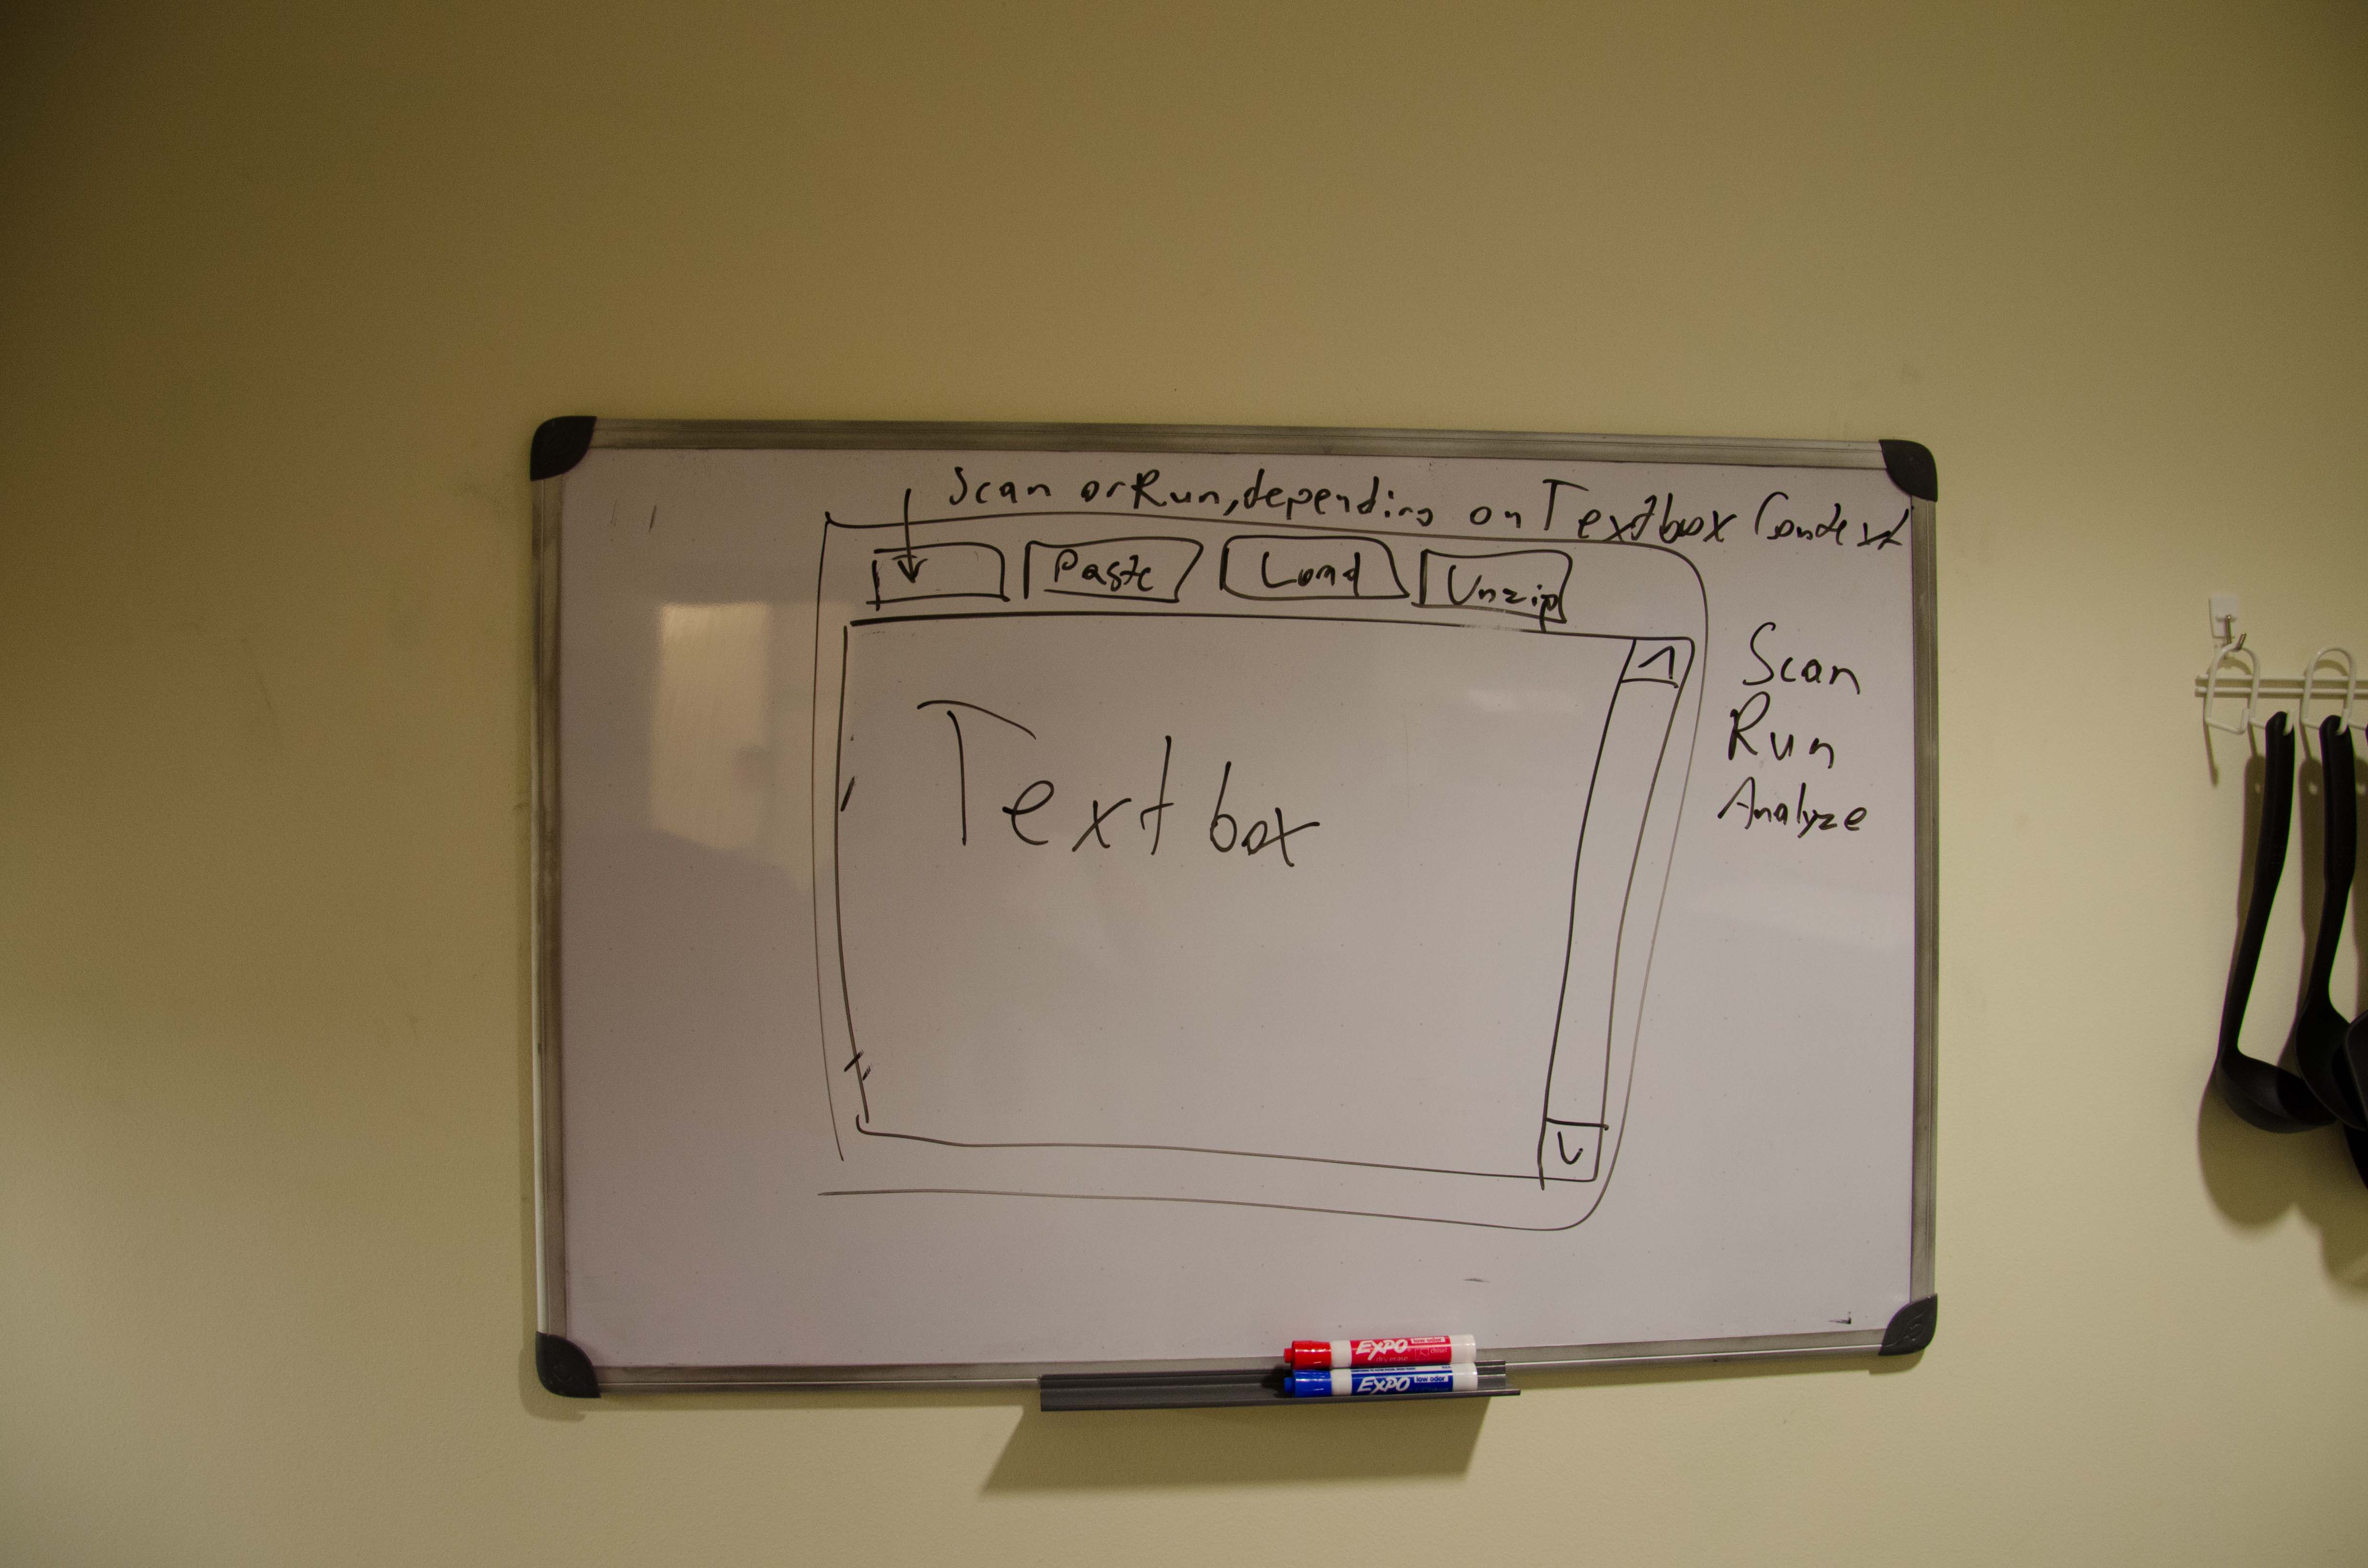 Scan or Run, depending on Textbox Context
Paste Load Unzip
Textbox
Scan
Run
Analyze
EXPO low odor
dry erase
EXPO low odor